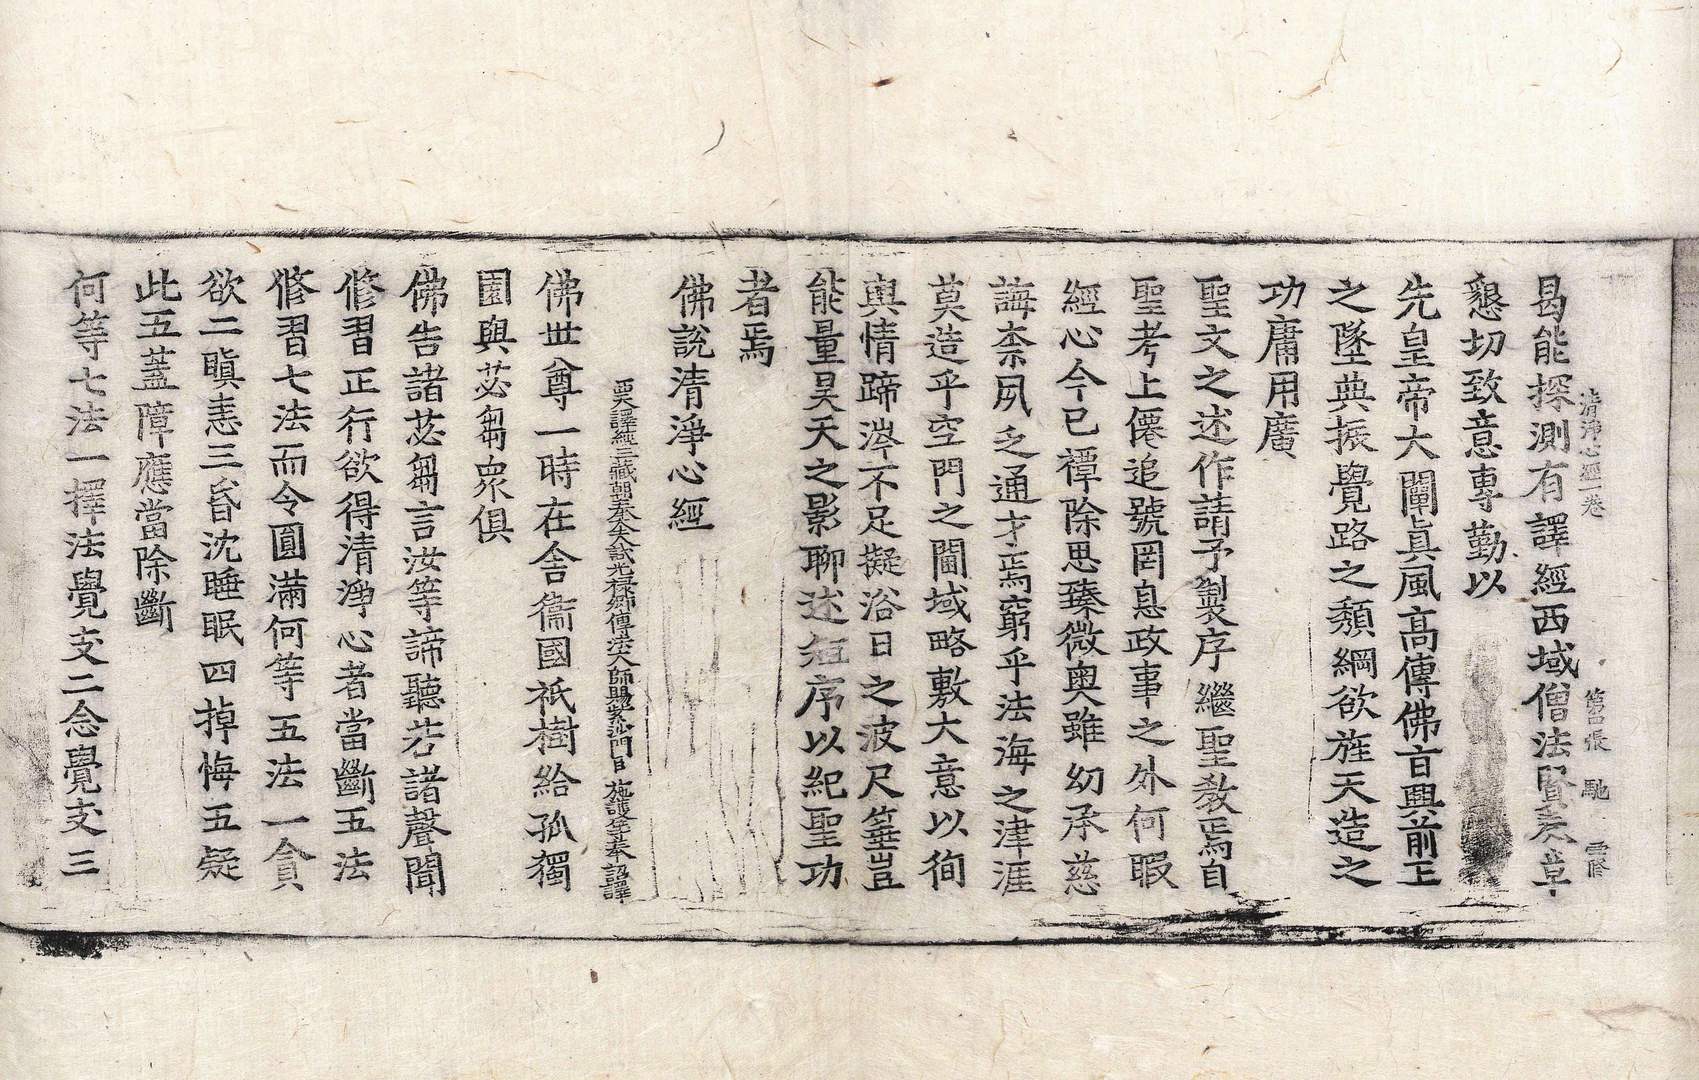 清淨心經一卷 第四張 馳
曷能探測有譯經西域僧法賢奏章
懇切致意專勤以
先皇帝大闡真風高傳佛旨興前王
之墜典振覺路之頹綱欲旌天造之
功庸用廣
聖文之述作請予製序繼聖教焉自
聖考上僊追號罔息政事之外何暇
經心今已禫除思臻微奧雖幼承慈
誨柰夙乏通才焉窮乎法海之津涯
莫造乎空門之閫域略敷大意以徇
輿情蹄涔不足擬浴日之波尺箠豈
能量昊天之影聊述短序以紀聖功
者焉
佛說清淨心經
西天譯經三藏朝奉大夫試光祿卿傳法大師賜紫沙門臣 施護等奉 詔譯
佛世尊一時在舍衞國祇樹給孤獨
園與苾芻衆俱
佛告諸苾芻言汝等諦聽若諸聲聞
修習正行欲得清淨心者當斷五法
修習七法而令圓滿何等五法一貪
欲二瞋恚三昏沈睡眠四掉悔五疑
此五蓋障應當除斷
何等七法一擇法覺支二念覺支三